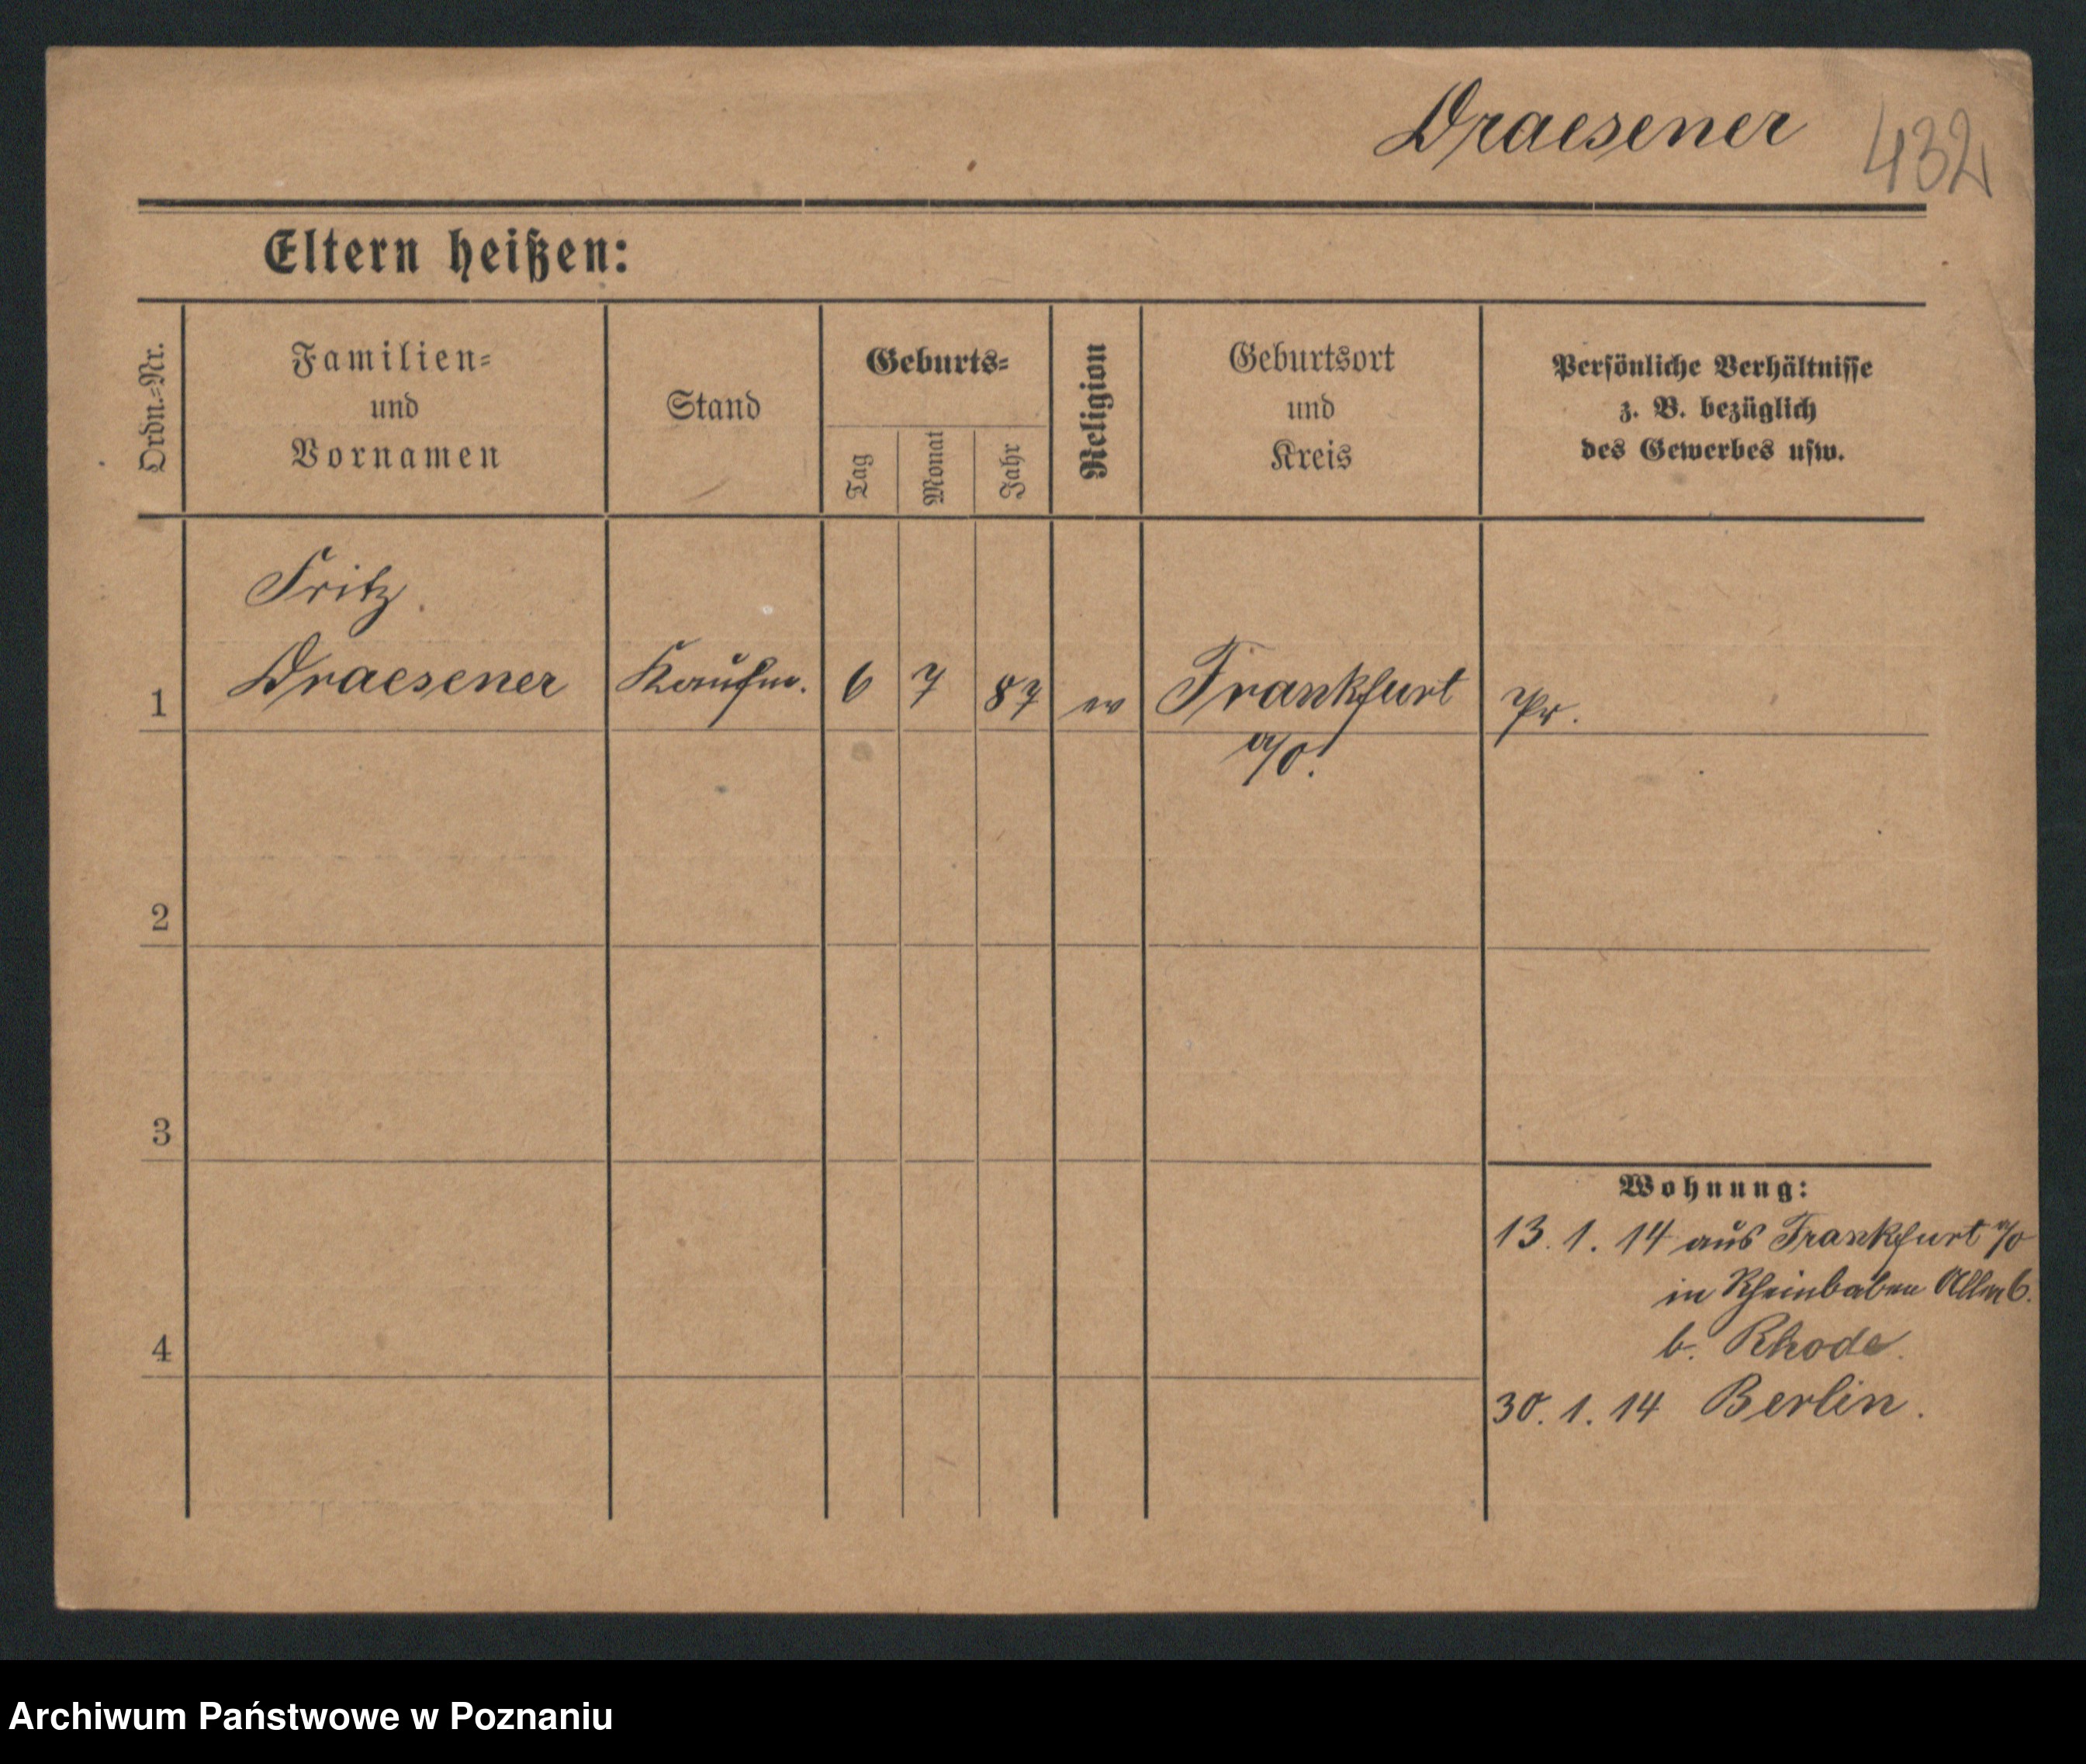 Draesener 432
Eltern heißen:
Ordn.-Nr.
Familien-
und
Vornamen
Stand
Geburts-
Tag
Monat
Jahr
Religion
Geburtsort
und
Kreis
Persönliche Verhältnisse
z. B. bezüglich
des Gewerbes usw.
Fritz
1 Draesener Kaufm. 6 7 87 ev Frankfurt Pr.
a/O.
2
3
4
Wohnung:
13. 1. 14 aus Frankfurt a/O
in Rheinbaben
b. Rhode.
30. 1. 14 Berlin.
Archiwum Państwowe w Poznaniu